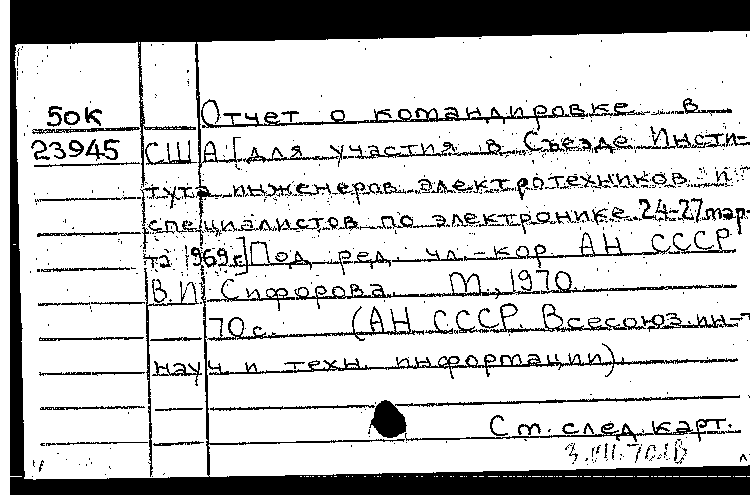 50К Отчет о командировке в
23945 США [для участия в Съезде Инсти-
тута инженеров электротехников и
специалистов по электронике 24-27 мар-
та 1969 г.] Под ред. чл.-кор АН СССР
В.И Сифорова. М., 1970.
70 с. (АН СССР. Всесоюз. ин-т
науч и техн. информации).
См. след. карт.
3.VII.70